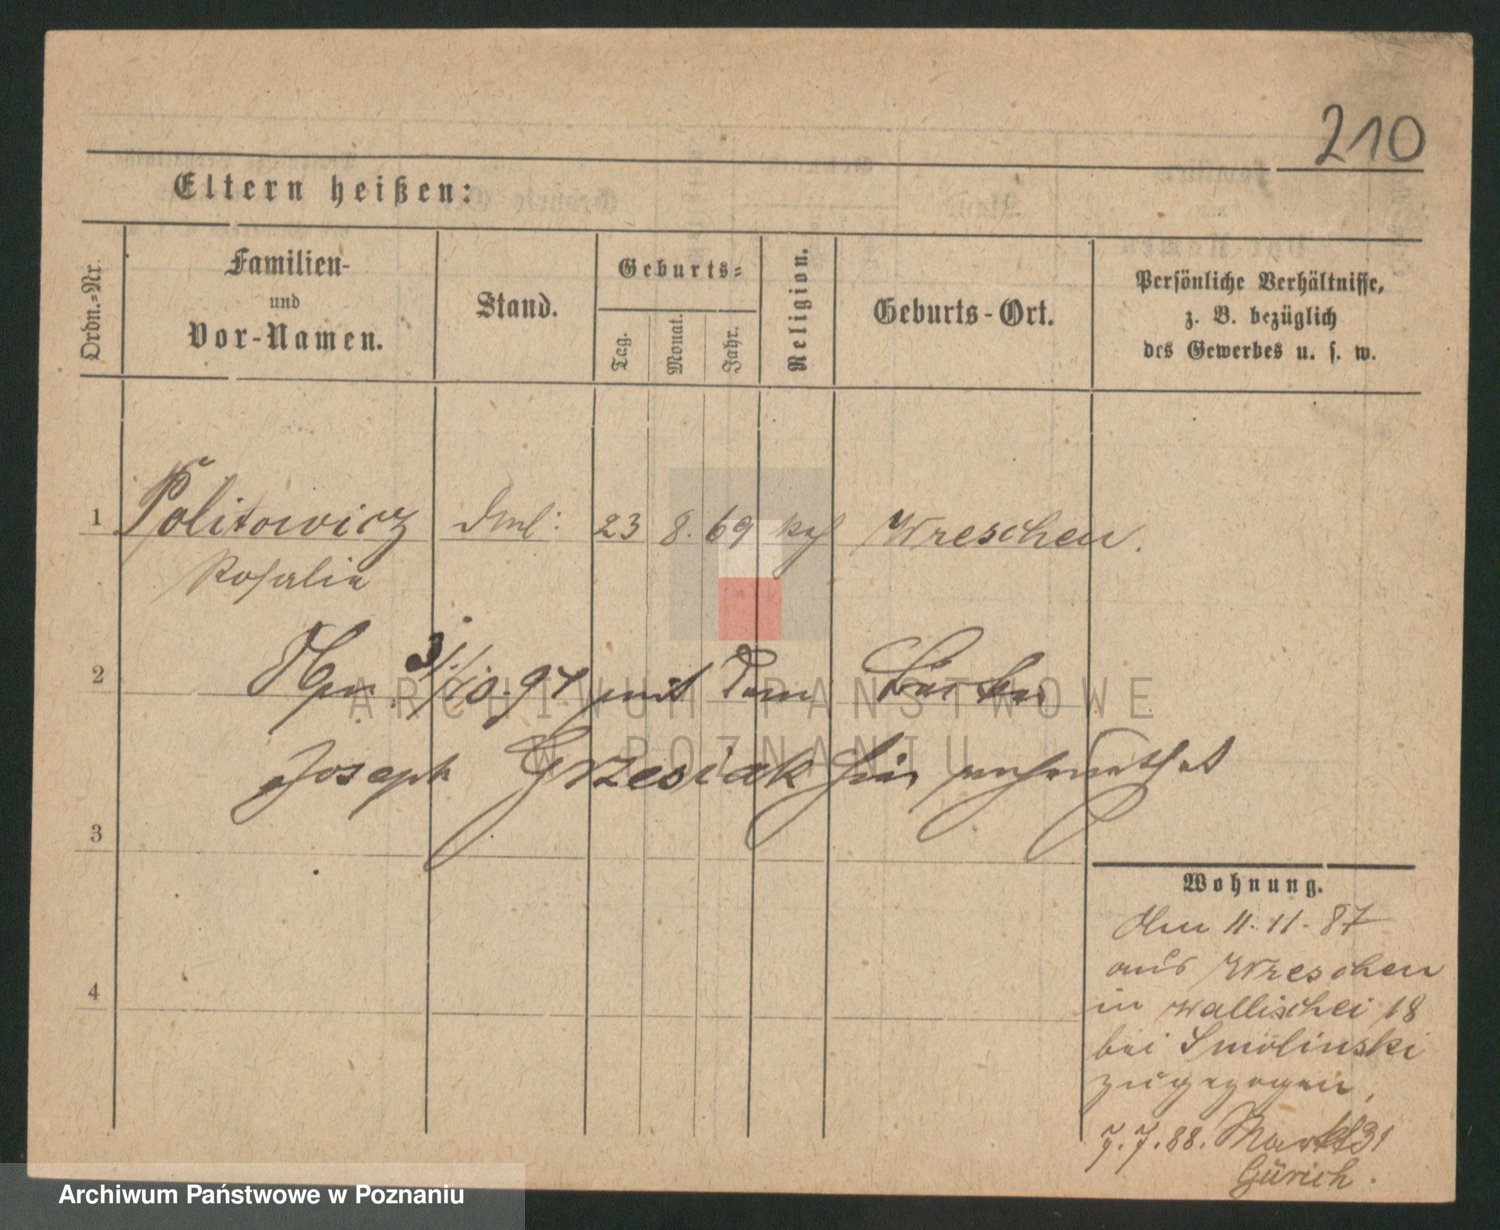 210
Eltern heißen:
Ordn.=Nr.
Familien-
und
Vor-Namen.
Stand.
Geburts=
Tag.
Monat.
Jahr.
Religion.
Geburts-Ort.
Persönliche Verhältnisse,
z. B. bezüglich
des Gewerbes u. s. w.
1 Politowicz 23 8. 69 Wreschen.
Rosalie
2 31/10. 97 mit dem
Joseph Grzesiak hier verheirathet
3
4
Wohnung.
Am 11. 11. 87
aus Wreschen
in Wallischei 18
bei Smolinski
zugezogen,
7. 7. 88. Markt 31
Gürich.
ARCHIWUM PAŃSTWOWE
W POZNANIU
Archiwum Państwowe w Poznaniu